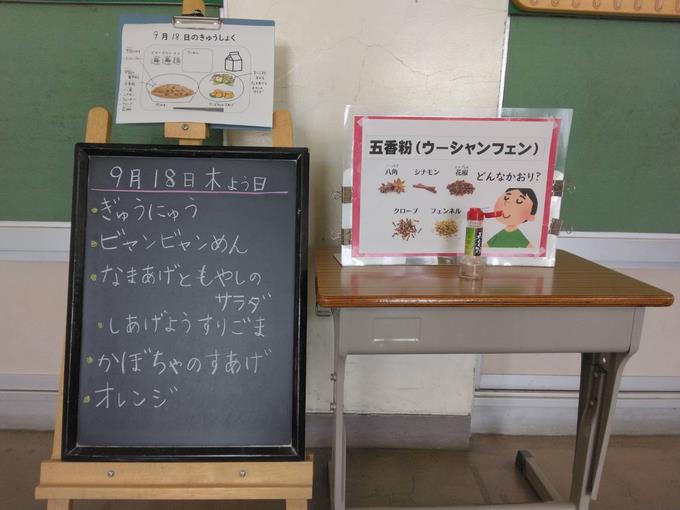 9月18日のきゅうしょく
9月18日木よう日
ぎゅうにゅう
ビャンビャンめん
なまあげともやしの
サラダ
しあげようすりごま
かぼちゃのすあげ
オレンジ
五香粉(ウーシャンフェン)
八角
シナモン
花椒
どんなかおり?
クローブ
フェンネル